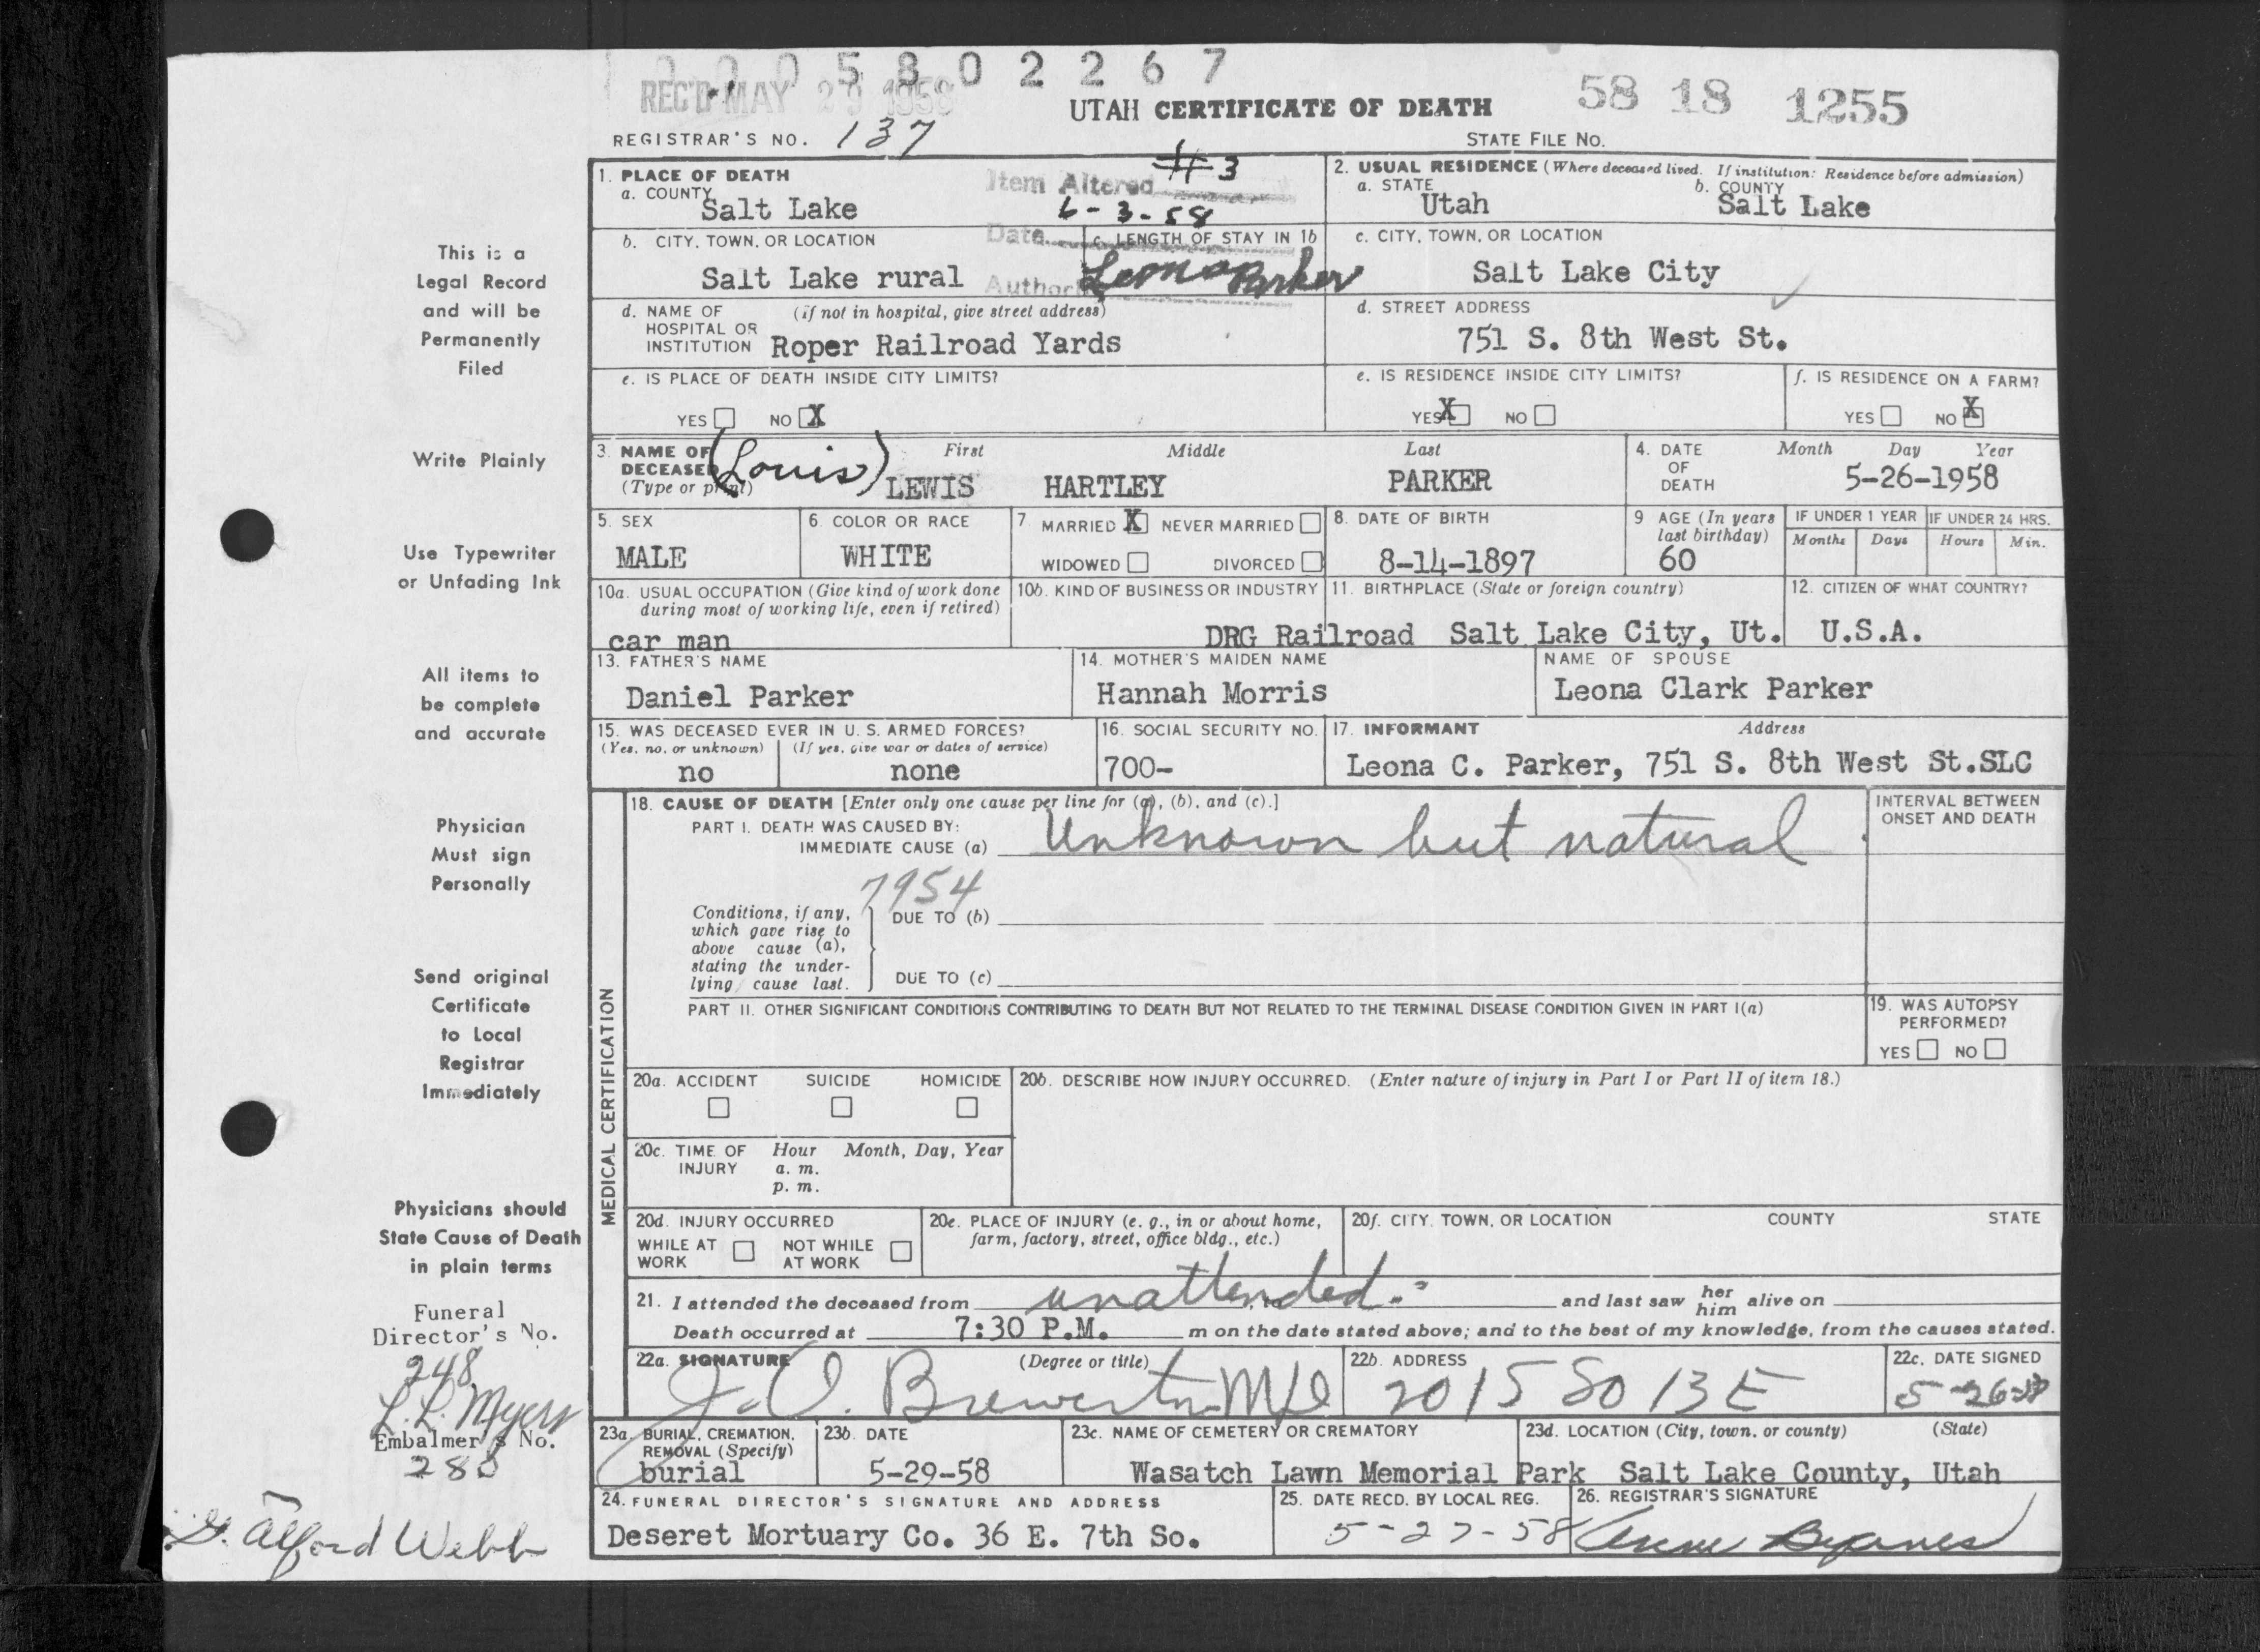 1 0 0 5 8 0 2 2 6 7
REC'D MAY 29 1958
UTAH CERTIFICATE OF DEATH
58 18 1255
REGISTRAR'S NO. 137
STATE FILE No.
1. PLACE OF DEATH
a. COUNTY
Salt Lake
Item Altered #3
Date 6-3-58
Leona Parker
2. USUAL RESIDENCE (Where deceased lived. If institution: Residence before admission)
a. STATE
Utah
b. COUNTY
Salt Lake
b. CITY, TOWN, OR LOCATION
Salt Lake rural
c. LENGTH OF STAY IN 1b
c. CITY, TOWN, OR LOCATION
Salt Lake City
d. NAME OF HOSPITAL OR INSTITUTION (if not in hospital, give street address)
Roper Railroad Yards
d. STREET ADDRESS
751 S. 8th West St.
e. IS PLACE OF DEATH INSIDE CITY LIMITS?
YES NO X
e. IS RESIDENCE INSIDE CITY LIMITS?
YES X NO
f. IS RESIDENCE ON A FARM?
YES NO X
3. NAME OF DECEASED (Type or print)
First Middle Last
(Louis) LEWIS HARTLEY PARKER
4. DATE OF DEATH
Month Day Year
5-26-1958
5. SEX
MALE
6. COLOR OR RACE
WHITE
7 MARRIED X NEVER MARRIED
WIDOWED DIVORCED
8. DATE OF BIRTH
8-14-1897
9 AGE (In years last birthday)
60
IF UNDER 1 YEAR
Months Days
IF UNDER 24 HRS.
Hours Min.
10a. USUAL OCCUPATION (Give kind of work done during most of working life, even if retired)
car man
10b. KIND OF BUSINESS OR INDUSTRY
DRG Railroad
11. BIRTHPLACE (State or foreign country)
Salt Lake City, Ut.
12. CITIZEN OF WHAT COUNTRY?
U.S.A.
13. FATHER'S NAME
Daniel Parker
14. MOTHER'S MAIDEN NAME
Hannah Morris
NAME OF SPOUSE
Leona Clark Parker
15. WAS DECEASED EVER IN U. S. ARMED FORCES?
(Yes, no, or unknown) (If yes, give war or dates of service)
no none
16. SOCIAL SECURITY NO.
700-
17. INFORMANT Address
Leona C. Parker, 751 S. 8th West St.SLC
MEDICAL CERTIFICATION
18. CAUSE OF DEATH [Enter only one cause per line for (a), (b), and (c).]
PART I. DEATH WAS CAUSED BY:
IMMEDIATE CAUSE (a) Unknown but natural
INTERVAL BETWEEN ONSET AND DEATH
7954
Conditions, if any, which gave rise to above cause (a), stating the underlying cause last.
DUE TO (b)
DUE TO (c)
PART II. OTHER SIGNIFICANT CONDITIONS CONTRIBUTING TO DEATH BUT NOT RELATED TO THE TERMINAL DISEASE CONDITION GIVEN IN PART I(a)
19. WAS AUTOPSY PERFORMED?
YES NO
20a. ACCIDENT SUICIDE HOMICIDE
20b. DESCRIBE HOW INJURY OCCURRED. (Enter nature of injury in Part I or Part II of item 18.)
20c. TIME OF INJURY Hour Month, Day, Year
a. m.
p. m.
20d. INJURY OCCURRED
WHILE AT WORK NOT WHILE AT WORK
20e. PLACE OF INJURY (e. g., in or about home, farm, factory, street, office bldg., etc.)
20f. CITY, TOWN, OR LOCATION COUNTY STATE
21. I attended the deceased from unattended and last saw her him alive on
Death occurred at 7:30 P.M. m on the date stated above; and to the best of my knowledge, from the causes stated.
22a. SIGNATURE (Degree or title)
J. O. Brewerton MD
22b. ADDRESS
2015 So 13 E
22c. DATE SIGNED
5-26-58
23a. BURIAL, CREMATION, REMOVAL (Specify)
burial
23b. DATE
5-29-58
23c. NAME OF CEMETERY OR CREMATORY
Wasatch Lawn Memorial Park
23d. LOCATION (City, town, or county) (State)
Salt Lake County, Utah
24. FUNERAL DIRECTOR'S SIGNATURE AND ADDRESS
Deseret Mortuary Co. 36 E. 7th So.
25. DATE RECD. BY LOCAL REG.
5-27-58
26. REGISTRAR'S SIGNATURE
This is a
Legal Record
and will be
Permanently
Filed
Write Plainly
Use Typewriter
or Unfading Ink
All items to
be complete
and accurate
Physician
Must sign
Personally
Send original
Certificate
to Local
Registrar
Immediately
Physicians should
State Cause of Death
in plain terms
Funeral
Director's No.
248
L. L. Myers
Embalmer's No.
288
G. Alford Webb